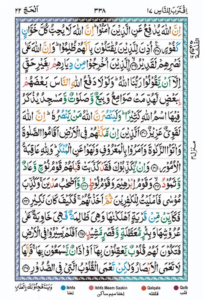 اِقْتَرَبَ لِلنَّاسِ ١٧ ٣٣٨ اَلْحَجّ ٢٢
اِنَّ اللّٰهَ يُدٰفِعُ عَنِ الَّذِيْنَ اٰمَنُوْا ؕ اِنَّ اللّٰهَ لَا يُحِبُّ كُلَّ خَوَّانٍ
كَفُوْرٍ ۞ اُذِنَ لِلَّذِيْنَ يُقٰتَلُوْنَ بِاَنَّهُمْ ظُلِمُوْا ؕ وَاِنَّ اللّٰهَ عَلٰى
نَصْرِهِمْ لَقَدِيْرُ ۞ اۨلَّذِيْنَ اُخْرِجُوْا مِنْ دِيَارِهِمْ بِغَيْرِ حَقٍّ
اِلَّاۤ اَنْ يَّقُوْلُوْا رَبُّنَا اللّٰهُ ؕ وَلَوْلَا دَفْعُ اللّٰهِ النَّاسَ بَعْضَهُمْ
بِبَعْضٍ لَّهُدِّمَتْ صَوَامِعُ وَبِيَعٌ وَّصَلَوٰتٌ وَّمَسٰجِدُ يُذْكَرُ
فِيْهَا اسْمُ اللّٰهِ كَثِيْرًا ؕ وَلَيَنْصُرَنَّ اللّٰهُ مَنْ يَّنْصُرُهٗ ؕ اِنَّ اللّٰهَ
لَقَوِيٌّ عَزِيْزٌ ۞ اَلَّذِيْنَ اِنْ مَّكَّنّٰهُمْ فِى الْاَرْضِ اَقَامُوا الصَّلٰوةَ
وَاٰتَوُا الزَّكٰوةَ وَاَمَرُوْا بِالْمَعْرُوْفِ وَنَهَوْا عَنِ الْمُنْكَرِ ؕ وَلِلّٰهِ عَاقِبَةُ
الْاُمُوْرِ ۞ وَاِنْ يُّكَذِّبُوْكَ فَقَدْ كَذَّبَتْ قَبْلَهُمْ قَوْمُ نُوْحٍ وَّعَادٌ
وَّثَمُوْدُ ۞ وَقَوْمُ اِبْرٰهِيْمَ وَقَوْمُ لُوْطٍ ۞ وَّاَصْحٰبُ مَدْيَنَ ۚ وَكُذِّبَ
مُوْسٰى فَاَمْلَيْتُ لِلْكٰفِرِيْنَ ثُمَّ اَخَذْتُهُمْ ۚ فَكَيْفَ كَانَ نَكِيْرِ ۞
فَكَاَيِّنْ مِّنْ قَرْيَةٍ اَهْلَكْنٰهَا وَهِىَ ظَالِمَةٌ فَهِىَ خَاوِيَةٌ عَلٰى
عُرُوْشِهَا وَبِئْرٍ مُّعَطَّلَةٍ وَّقَصْرٍ مَّشِيْدٍ ۞ اَفَلَمْ يَسِيْرُوْا فِى الْاَرْضِ
فَتَكُوْنَ لَهُمْ قُلُوْبٌ يَّعْقِلُوْنَ بِهَاۤ اَوْ اٰذَانٌ يَّسْمَعُوْنَ بِهَا ۚ فَاِنَّهَا لَا
تَعْمَى الْاَبْصَارُ وَلٰكِنْ تَعْمَى الْقُلُوْبُ الَّتِىْ فِى الصُّدُوْرِ ۞
Ikhfa Ikhfa Meem Saakin Qalqala